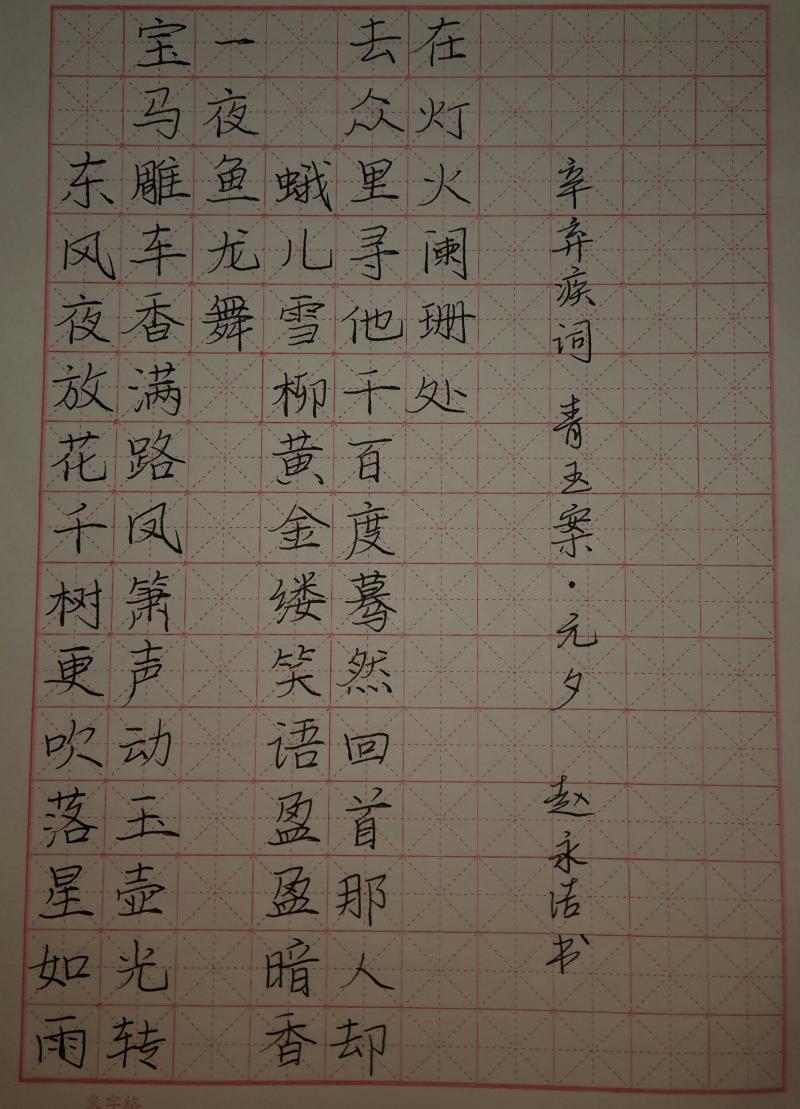 东风夜放花千树更吹落星如雨
宝马雕车香满路凤箫声动玉壶光转
一夜鱼龙舞
蛾儿雪柳黄金缕笑语盈盈暗香
去众里寻他千百度蓦然回首那人却
在灯火阑珊处
辛弃疾词 青玉案·元夕 赵永洁书
米字格